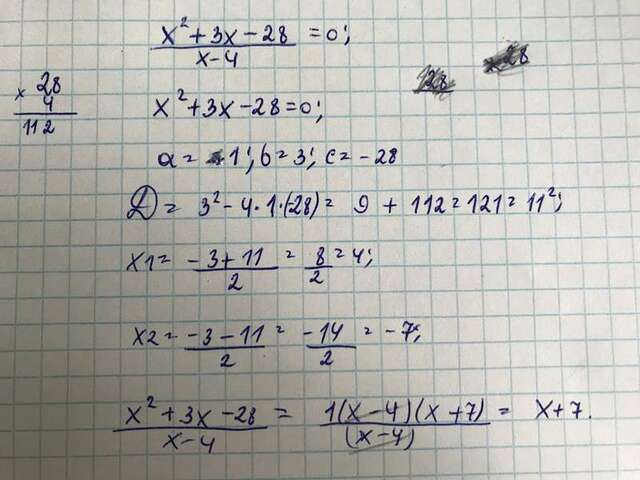 × 28
4
112
x² + 3x - 28 / x - 4 = 0;
x² + 3x - 28 = 0;
a = 1; b = 3; c = - 28
D = 3² - 4 · 1 · (-28) = 9 + 112 = 121 = 11²;
x1 = - 3 + 11 / 2 = 8 / 2 = 4;
x2 = - 3 - 11 / 2 = - 14 / 2 = - 7;
x² + 3x - 28 / x - 4 = 1(x - 4)(x + 7) / (x - 4) = x + 7.